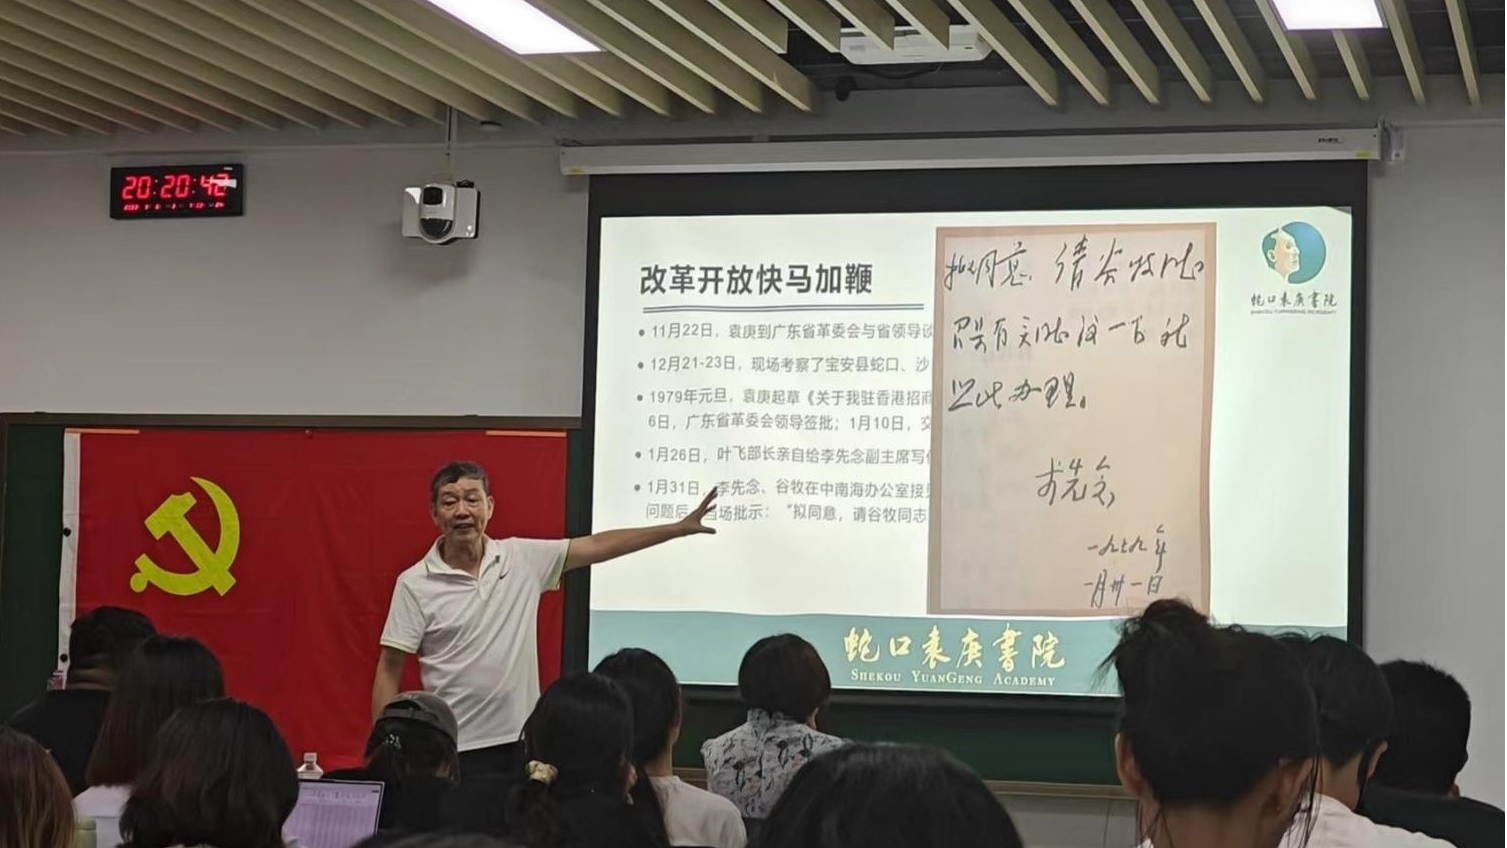 20:20:42
改革开放快马加鞭
• 11月22日，袁庚到广东省革委会与省领导谈
• 12月21-23日，现场考察了宝安县蛇口、沙
• 1979年元旦，袁庚起草《关于我驻香港招商
6日，广东省革委会领导签批；1月10日，交
• 1月26日，叶飞部长亲自给李先念副主席写信
• 1月31日，李先念、谷牧在中南海办公室接见
问题后，当场批示：“拟同意，请谷牧同志
拟同意。请谷牧同志
召集有关同志议一下，就
照此办理。
李先念
一九七九年
一月卅一日
蛇口袁庚书院
SHEKOU YUANGENG ACADEMY
蛇口袁庚書院
SHEKOU YUANGENG ACADEMY